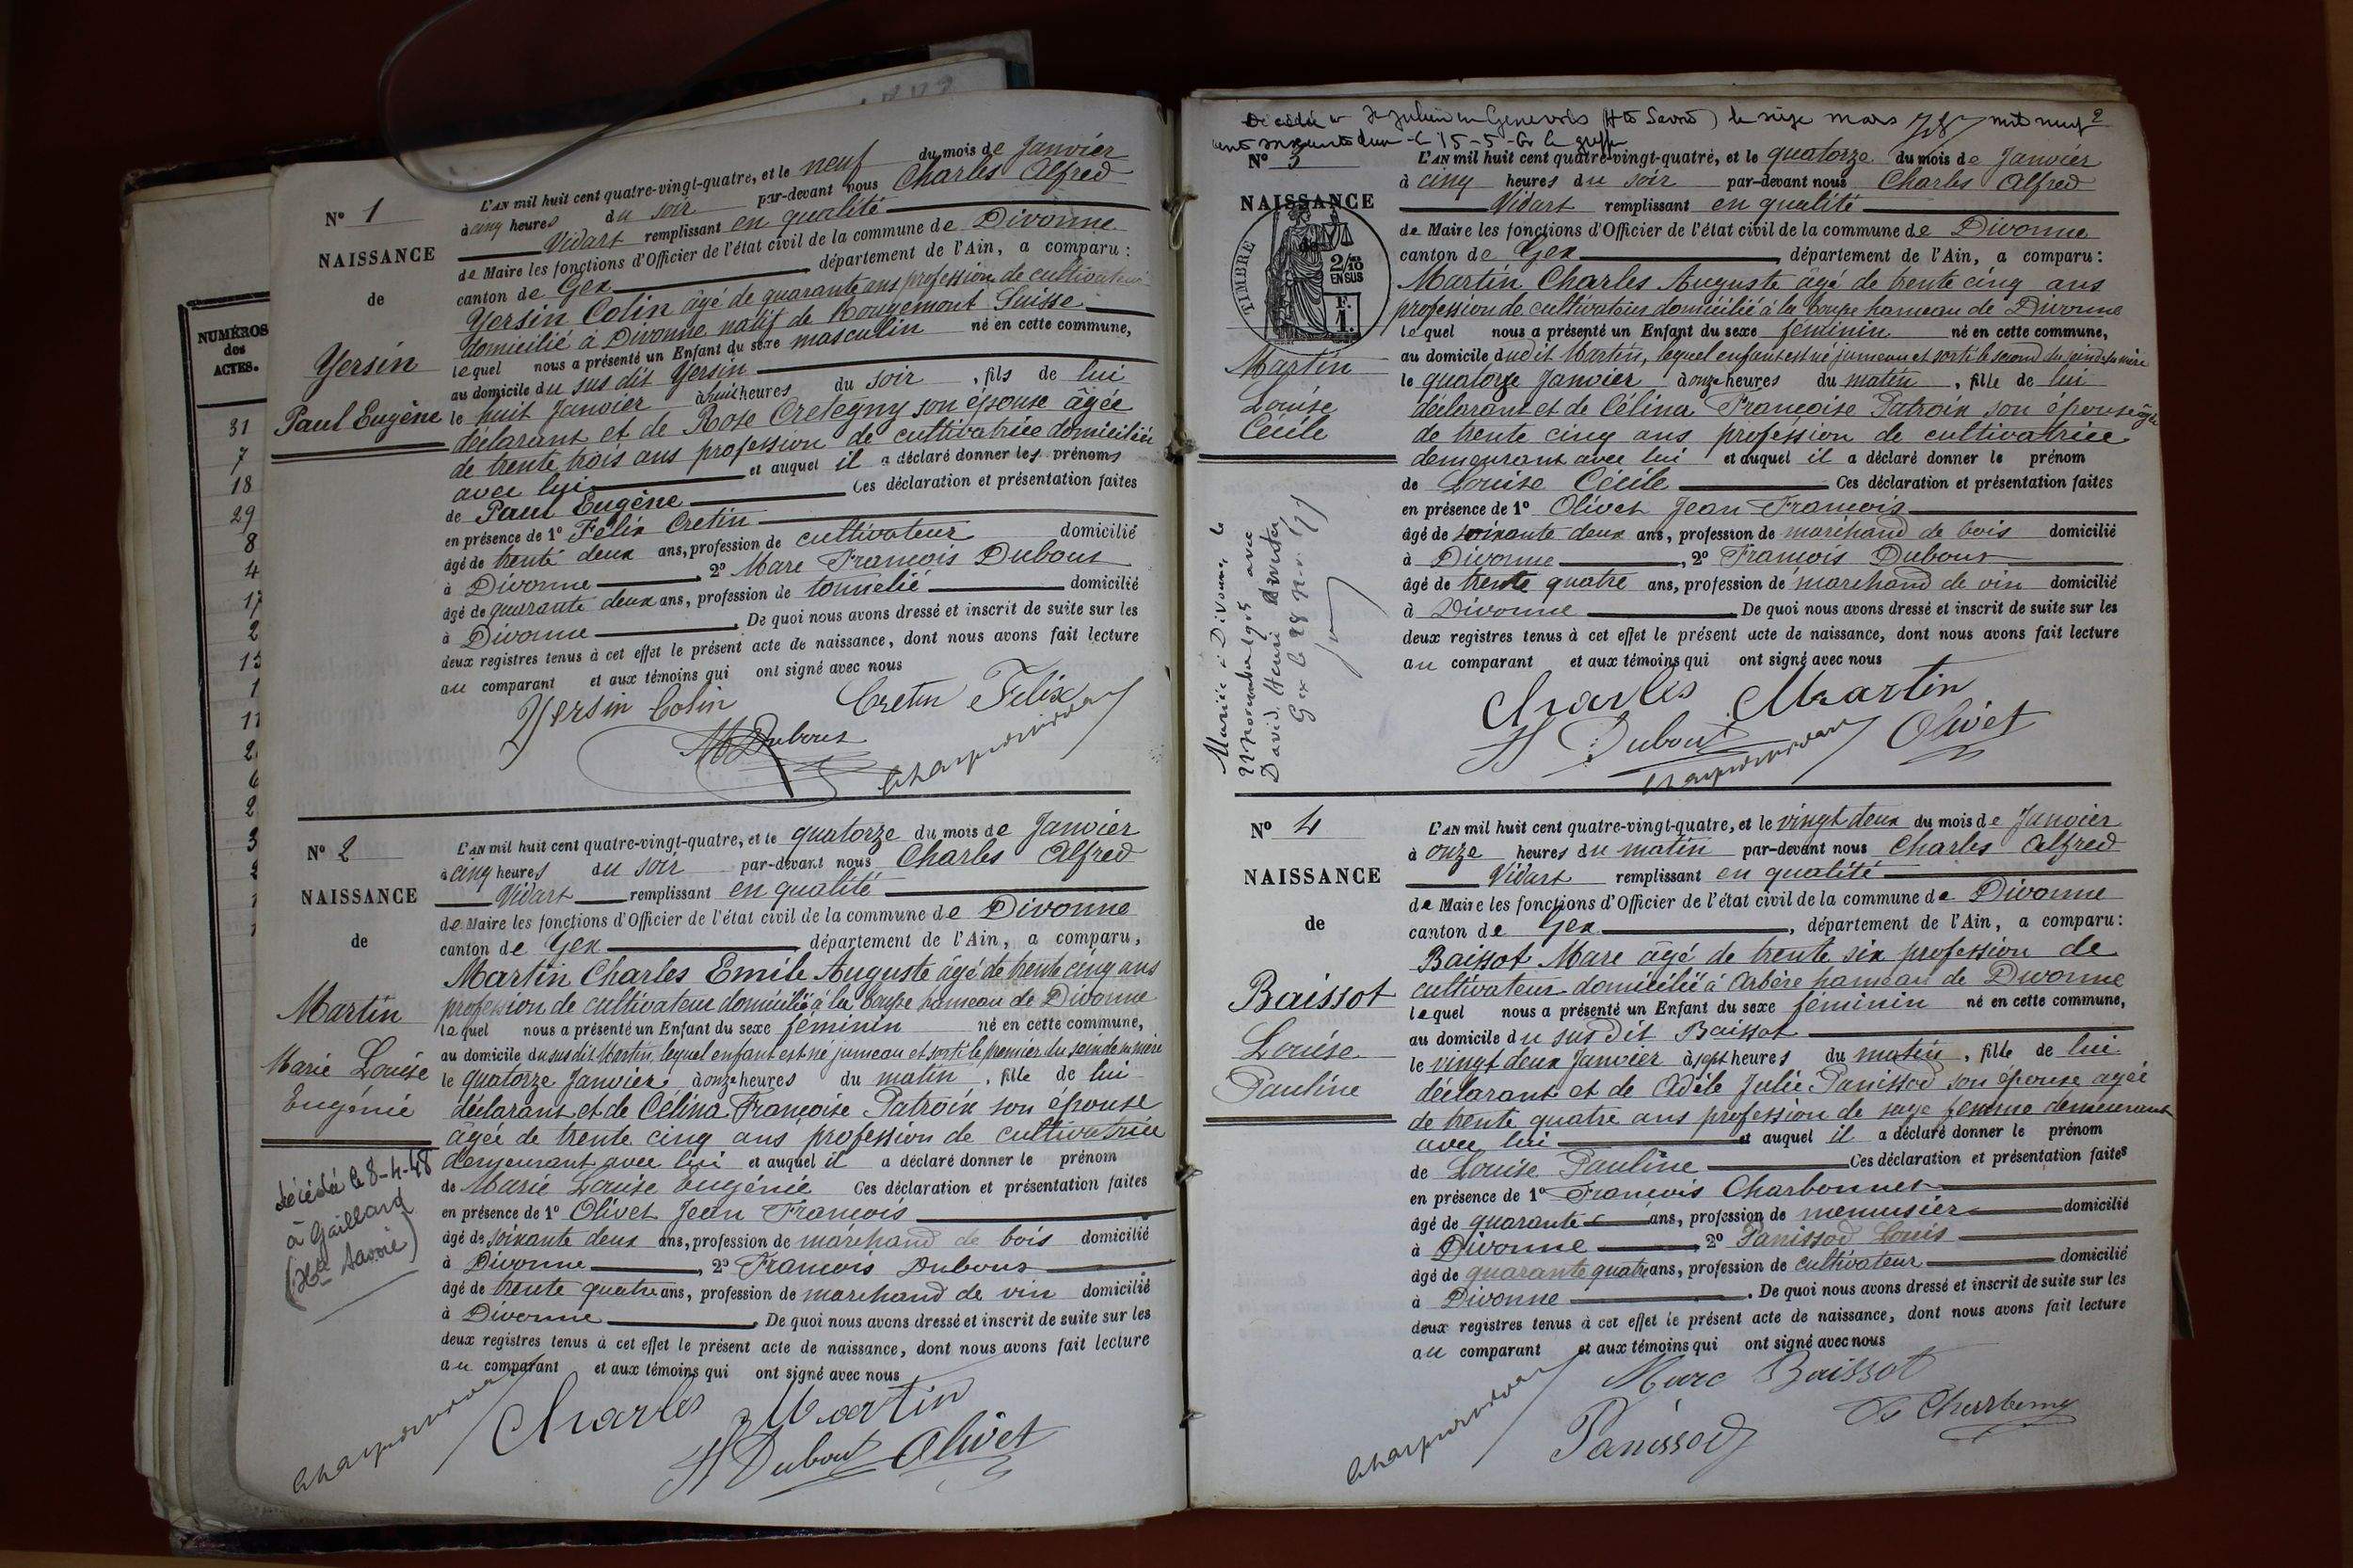 NUMÉROS
des
ACTES.
31
7
18
29
8
4
17
2
13
1
11
2
6
2
3
N° 1
NAISSANCE
de
Yersin
Paul Eugène
L'AN mil huit cent quatre-vingt-quatre, et le neuf du mois de Janvier
à cinq heures du soir par-devant nous Charles Alfred
Vidart remplissant en qualité
de Maire les fonctions d'Officier de l'état civil de la commune de Divonne
canton de Gex département de l'Ain, a comparu :
Yersin Colin âgé de quarante ans profession de cultivateur
domicilié à Divonne natif de Rougemont Suisse
lequel nous a présenté un Enfant du sexe masculin né en cette commune,
au domicile du sus dit Yersin
le huit Janvier à huit heures du soir, fils de lui
déclarant et de Rose Cretegny son épouse âgée
de trente trois ans profession de cultivatrice domiciliée
avec lui et auquel il a déclaré donner les prénoms
de Paul Eugène Ces déclaration et présentation faites
en présence de 1° Félix Cretin
âgé de trente deux ans, profession de cultivateur domicilié
à Divonne, 2° Marc François Dubout
âgé de quarante deux ans, profession de tonnelié domicilié
à Divonne. De quoi nous avons dressé et inscrit de suite sur les
deux registres tenus à cet effet le présent acte de naissance, dont nous avons fait lecture
au comparant et aux témoins qui ont signé avec nous
Yersin Colin Cretin Félix
Dubout
N° 2
NAISSANCE
de
Martin
Marie Louise
Eugénie
décédé le 8-4-48
à Gaillard
(Hte Savoie)
L'AN mil huit cent quatre-vingt-quatre, et le quatorze du mois de Janvier
à cinq heures du soir par-devant nous Charles Alfred
Vidart remplissant en qualité
de Maire les fonctions d'Officier de l'état civil de la commune de Divonne
canton de Gex département de l'Ain, a comparu,
Martin Charles Emile Auguste âgé de trente cinq ans
profession de cultivateur domicilié à la Coupe hameau de Divonne
lequel nous a présenté un Enfant du sexe féminin né en cette commune,
au domicile du sus dit Martin, lequel enfant est né jumeau et sorti le premier du sein de sa mère
le quatorze Janvier à onze heures du matin, fille de lui
déclarant et de Célina Françoise Patroix son épouse
âgée de trente cinq ans profession de cultivatrice
demeurant avec lui et auquel il a déclaré donner le prénom
de Marie Louise Eugénie Ces déclaration et présentation faites
en présence de 1° Olivet Jean François
âgé de soixante deux ans, profession de marchand de bois domicilié
à Divonne, 2° François Dubout
âgé de trente quatre ans, profession de marchand de vin domicilié
à Divonne. De quoi nous avons dressé et inscrit de suite sur les
deux registres tenus à cet effet le présent acte de naissance, dont nous avons fait lecture
au comparant et aux témoins qui ont signé avec nous
Charles Martin
Dubout Olivet
2
St Julien en Genevois (Hte Savoie) le seize mars mil neuf
cent soixante deux le 15-5-62 le greffier
N° 3
NAISSANCE
de
TIMBRE
2/10
EN SUS
F.
1.
Martin
Louise
Cécile
Mariée à Divonne, le
novembre 1905 avec
David Henri
Gex le 28
L'AN mil huit cent quatre-vingt-quatre, et le quatorze du mois de Janvier
à cinq heures du soir par-devant nous Charles Alfred
Vidart remplissant en qualité
de Maire les fonctions d'Officier de l'état civil de la commune de Divonne
canton de Gex, département de l'Ain, a comparu :
Martin Charles Auguste âgé de trente cinq ans
profession de cultivateur domicilié à la Coupe hameau de Divonne
lequel nous a présenté un Enfant du sexe féminin né en cette commune,
au domicile dudit Martin, lequel enfant est né jumeau et sorti le second du sein de sa mère
le quatorze Janvier à onze heures du matin, fille de lui
déclarant et de Célina Françoise Patroix son épouse âgée
de trente cinq ans profession de cultivatrice
demeurant avec lui et auquel il a déclaré donner le prénom
de Louise Cécile Ces déclaration et présentation faites
en présence de 1° Olivet Jean François
âgé de soixante deux ans, profession de marchand de bois domicilié
à Divonne, 2° François Dubout
âgé de trente quatre ans, profession de marchand de vin domicilié
à Divonne De quoi nous avons dressé et inscrit de suite sur les
deux registres tenus à cet effet le présent acte de naissance, dont nous avons fait lecture
au comparant et aux témoins qui ont signé avec nous
Charles Martin
Dubout Olivet
N° 4
NAISSANCE
de
Baissot
Louise
Pauline
L'AN mil huit cent quatre-vingt-quatre, et le vingt deux du mois de Janvier
à onze heures du matin par-devant nous Charles Alfred
Vidart remplissant en qualité
de Maire les fonctions d'Officier de l'état civil de la commune de Divonne
canton de Gex, département de l'Ain, a comparu :
Baissot Marc âgé de trente six profession de
cultivateur domicilié à Arbère hameau de Divonne
lequel nous a présenté un Enfant du sexe féminin né en cette commune,
au domicile du sus dit Baissot
le vingt deux Janvier à sept heures du matin, fille de lui
déclarant et de Adèle Julie Panissod son épouse âgée
de trente quatre ans profession de sage femme demeurant
avec lui et auquel il a déclaré donner le prénom
de Louise Pauline Ces déclaration et présentation faites
en présence de 1° François Charbonnet
âgé de quarante ans, profession de menuisier domicilié
à Divonne 2° Panissod Louis
âgé de quarante quatre ans, profession de cultivateur domicilié
à Divonne. De quoi nous avons dressé et inscrit de suite sur les
deux registres tenus à cet effet le présent acte de naissance, dont nous avons fait lecture
au comparant et aux témoins qui ont signé avec nous
Marc Baissot
Panissod